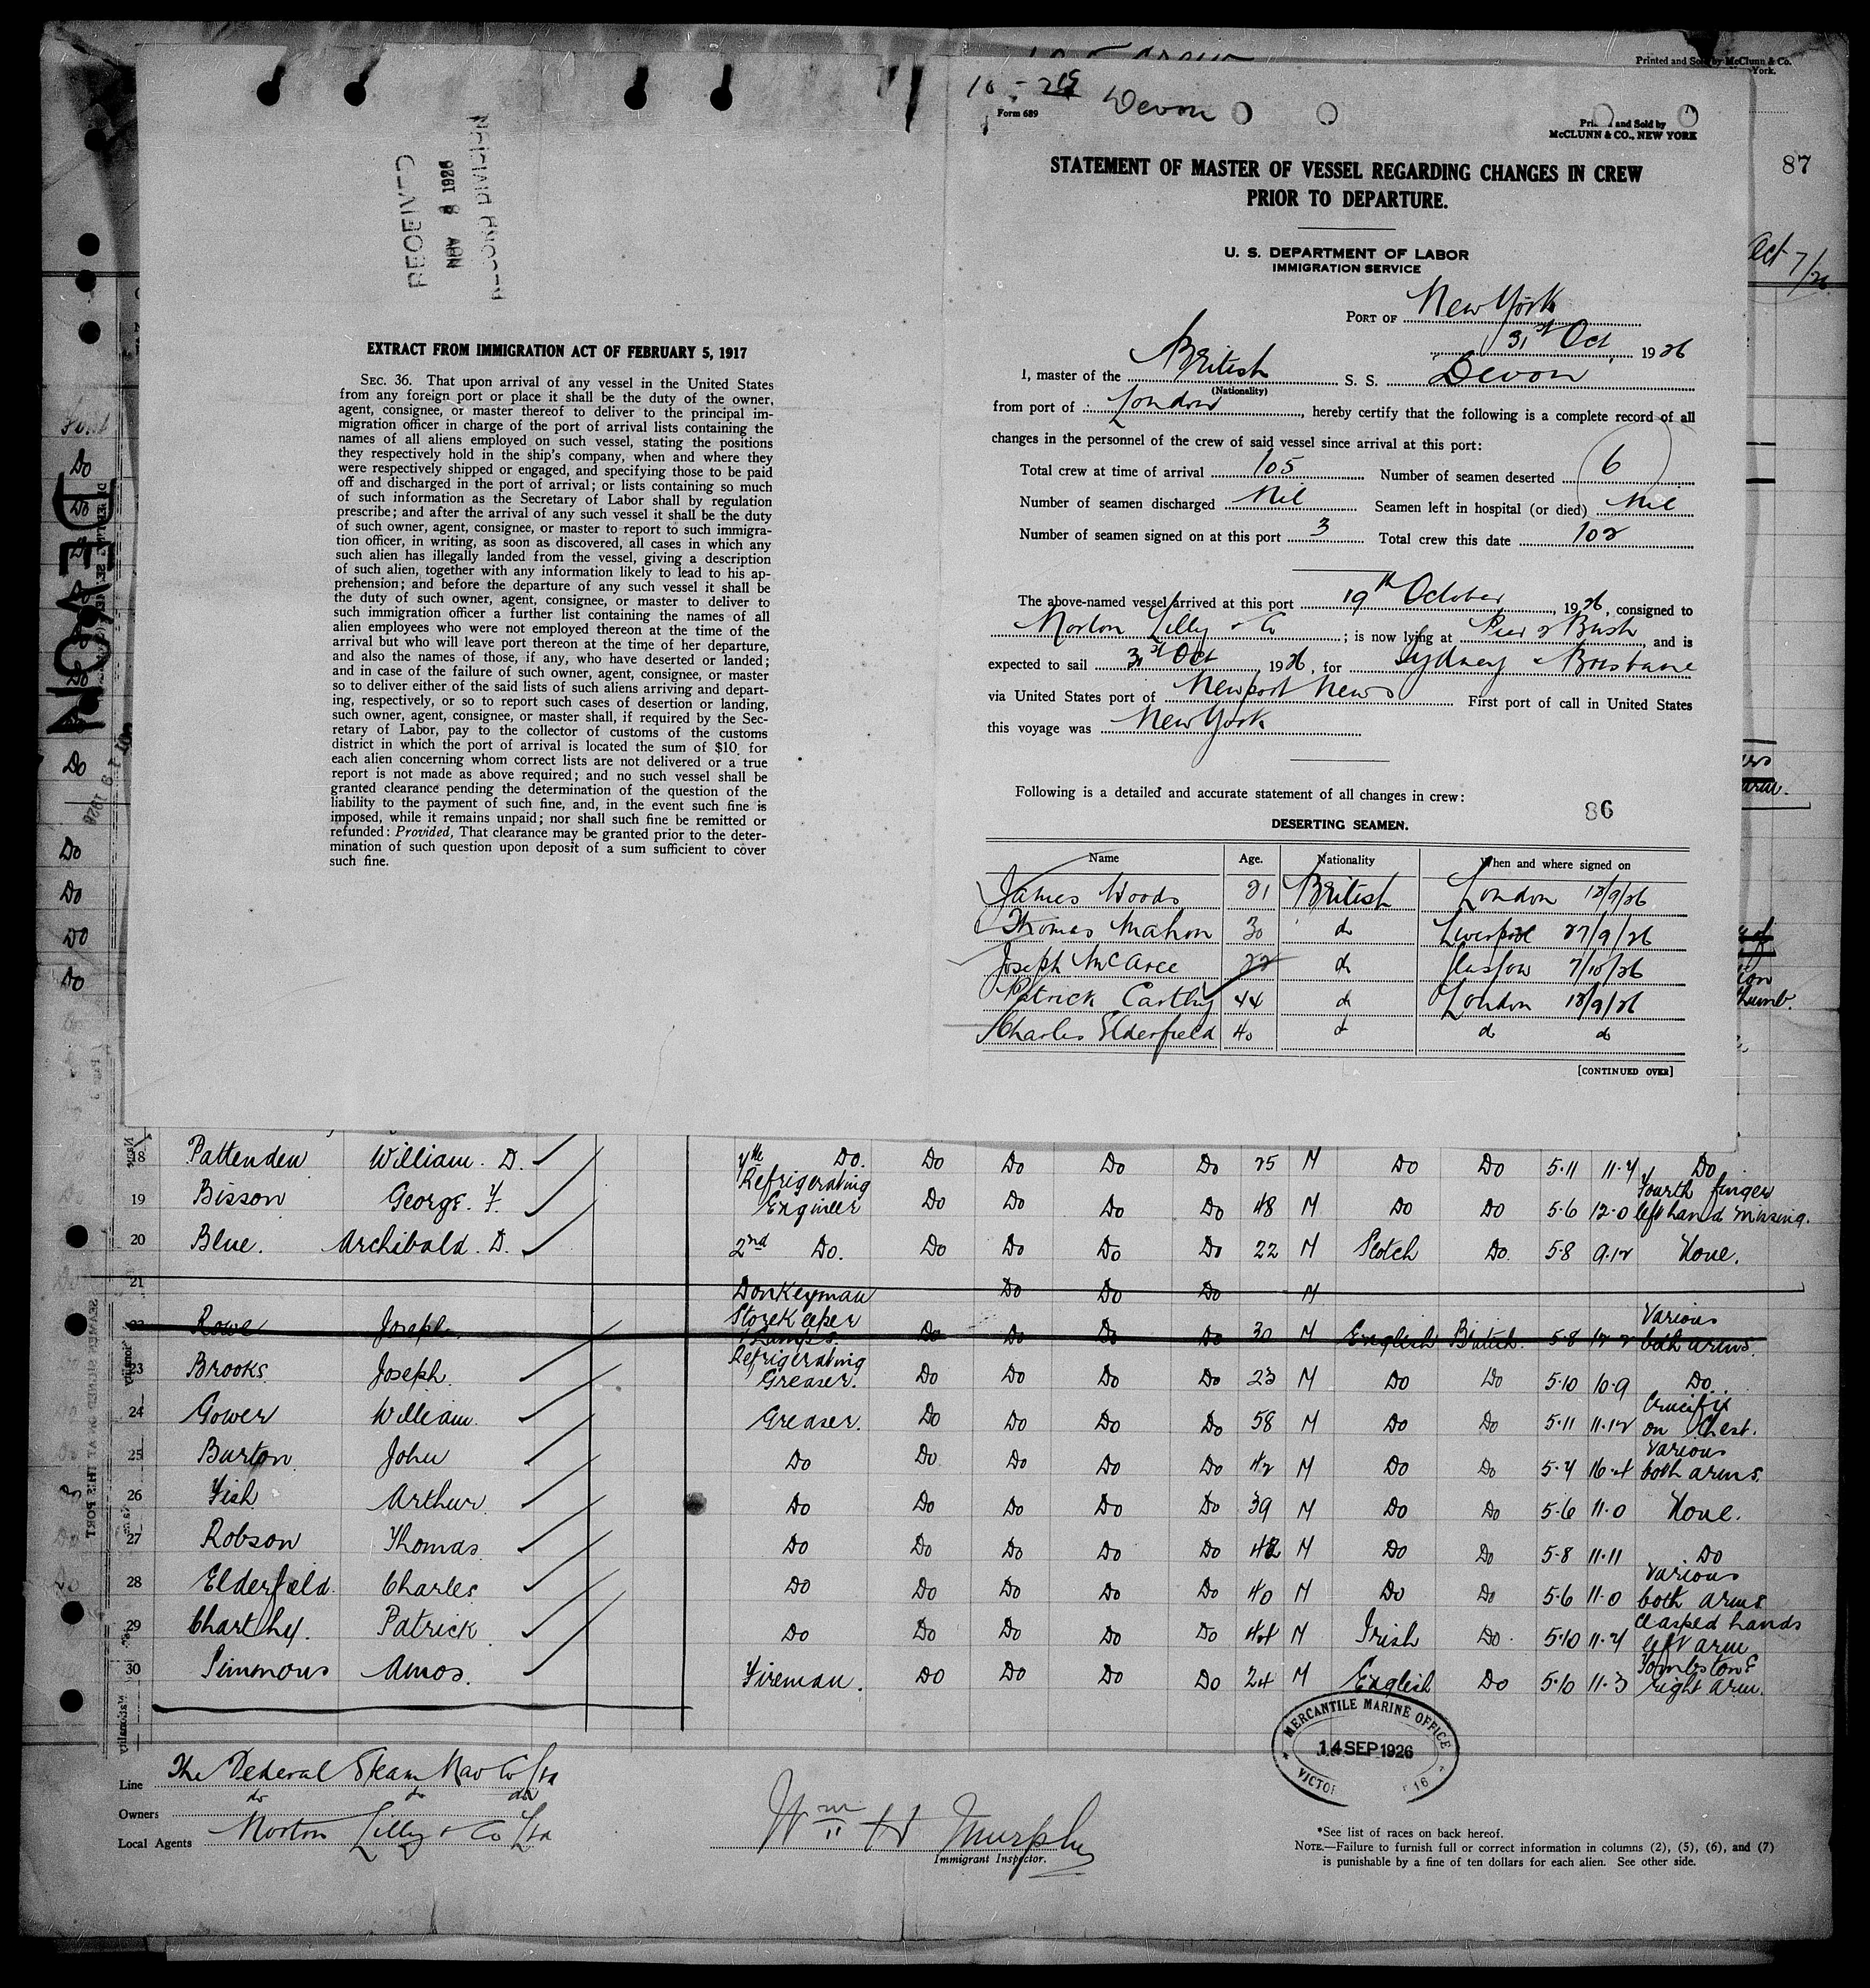 Printed and Sold by McClunn & Co.
York.
10 - 26 Devon
Form 689
Printed and Sold by
McCLUNN & CO., NEW YORK
87
Oct 7/26
RECEIVED
NOV 8 1926
RECORD DIVISION
EXTRACT FROM IMMIGRATION ACT OF FEBRUARY 5, 1917
SEC. 36. That upon arrival of any vessel in the United States
from any foreign port or place it shall be the duty of the owner,
agent, consignee, or master thereof to deliver to the principal im-
migration officer in charge of the port of arrival lists containing the
names of all aliens employed on such vessel, stating the positions
they respectively hold in the ship's company, when and where they
were respectively shipped or engaged, and specifying those to be paid
off and discharged in the port of arrival; or lists containing so much
of such information as the Secretary of Labor shall by regulation
prescribe; and after the arrival of any such vessel it shall be the duty
of such owner, agent, consignee, or master to report to such immigra-
tion officer, in writing, as soon as discovered, all cases in which any
such alien has illegally landed from the vessel, giving a description
of such alien, together with any information likely to lead to his ap-
prehension; and before the departure of any such vessel it shall be
the duty of such owner, agent, consignee, or master to deliver to
such immigration officer a further list containing the names of all
alien employees who were not employed thereon at the time of the
arrival but who will leave port thereon at the time of her departure,
and also the names of those, if any, who have deserted or landed;
and in case of the failure of such owner, agent, consignee, or master
so to deliver either of the said lists of such aliens arriving and depart-
ing, respectively, or so to report such cases of desertion or landing,
such owner, agent, consignee, or master shall, if required by the Sec-
retary of Labor, pay to the collector of customs of the customs
district in which the port of arrival is located the sum of $10 for
each alien concerning whom correct lists are not delivered or a true
report is not made as above required; and no such vessel shall be
granted clearance pending the determination of the question of the
liability to the payment of such fine, and, in the event such fine is
imposed, while it remains unpaid; nor shall such fine be remitted or
refunded: Provided, That clearance may be granted prior to the deter-
mination of such question upon deposit of a sum sufficient to cover
such fine.
STATEMENT OF MASTER OF VESSEL REGARDING CHANGES IN CREW
PRIOR TO DEPARTURE.
U. S. DEPARTMENT OF LABOR
IMMIGRATION SERVICE
PORT OF New York
31st Oct, 1926
I, master of the British S. S. Devon
(Nationality)
from port of London, hereby certify that the following is a complete record of all
changes in the personnel of the crew of said vessel since arrival at this port:
Total crew at time of arrival 105 Number of seamen deserted 6
Number of seamen discharged Nil Seamen left in hospital (or died) Nil
Number of seamen signed on at this port 3 Total crew this date 102
The above-named vessel arrived at this port 19th October, 1926, consigned to
Norton Lilly & Co; is now lying at Pier 2 Bush and is
expected to sail 31st Oct 1926, for Sydney & Brisbane
via United States port of Newport News First port of call in United States
this voyage was New York
Following is a detailed and accurate statement of all changes in crew:
86
DESERTING SEAMEN.
Name Age. Nationality When and where signed on
James Woods 21 British London 13/9/26
Thomas Mahon 30 do Liverpool 27/9/26
Joseph McAree 22 do Glasgow 7/10/26
Patrick Carthy 44 do London 13/9/26
Charles Elderfield 40 do do do
[CONTINUED OVER]
18 Pattenden William. D. 7th Do. Do Do Do Do 25 M Do Do 5·11 11·7 Do
19 Bisson George. F. Refrigerating Engineer Do Do Do Do 48 M Do Do 5·6 12·0 Fourth finger left hand missing.
20 Blue. Archibald. D. 2nd Do. Do Do Do Do 22 M Scotch Do. 5·8 9·12 None.
21 Donkeyman Do Do Do M
22 Rowe Joseph. Storekeeper & Lamps. Do Do Do Do 30 M English British. 5·8 12·2 Various both arms.
23 Brooks. Joseph. Refrigerating Greaser. Do Do Do Do 23 M Do Do 5·10 10·9 Do.
24 Gower William. Greaser. Do Do Do Do 58 M Do Do 5·11 11·12 Crucifix on Chest.
25 Burton. John Do Do Do Do Do 42 M Do Do 5·7 16·4 Various both arms.
26 Fish Arthur. Do Do Do Do Do 39 M Do Do 5·6 11·0 None.
27 Robson Thomas. Do Do Do Do Do 42 M Do Do 5·8 11·11 Do
28 Elderfield. Charles. Do Do Do Do Do 40 M Do Do 5·6 11·0 Various both arms.
29 Charthy. Patrick. Do Do Do Do Do 44 M Irish Do. 5·10 11·7 Clasped hands left arm
30 Simmons Amos. Fireman. Do Do Do Do 24 M English Do 5·10 11·3 Tombstone right arm.
MERCANTILE MARINE OFFICE
14 SEP 1926
Line The Federal Steam Nav Co Ltd
Owners do do do
Local Agents Norton Lilly & Co Ltd
Wm H Murphy
Immigrant Inspector.
*See list of races on back hereof.
NOTE.—Failure to furnish full or correct information in columns (2), (5), (6), and (7)
is punishable by a fine of ten dollars for each alien. See other side.